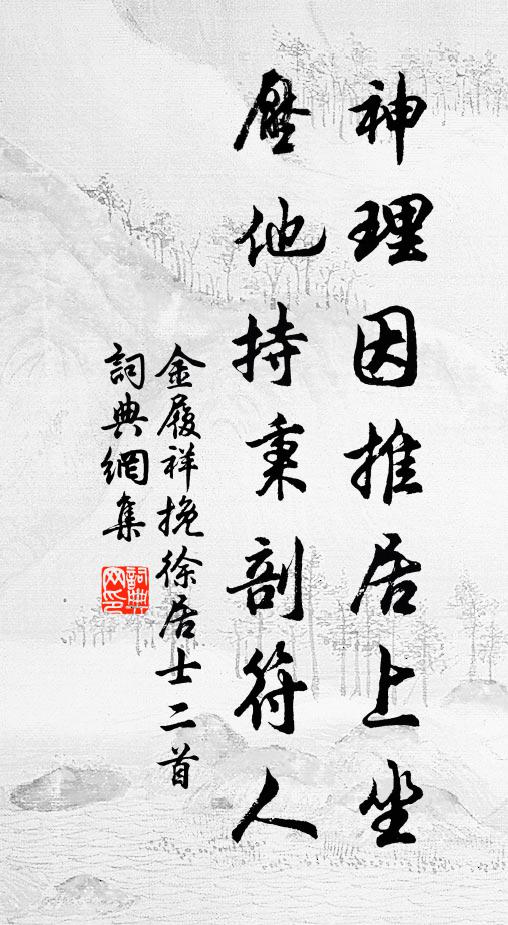 神理因推居上坐
壓他持秉剖符人
金履祥挽徐居士二首
詞典網集
詞典網印